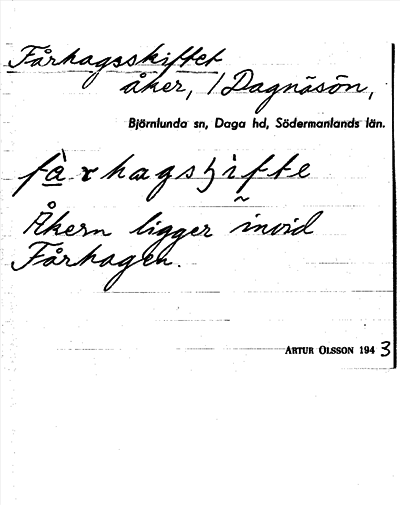 Fårhagsskiftet
åker, / Dagnäsön,
Björnlunda sn, Daga hd, Södermanlands län.
Åkern ligger invid
Fårhagen.
ARTUR OLSSON 1943